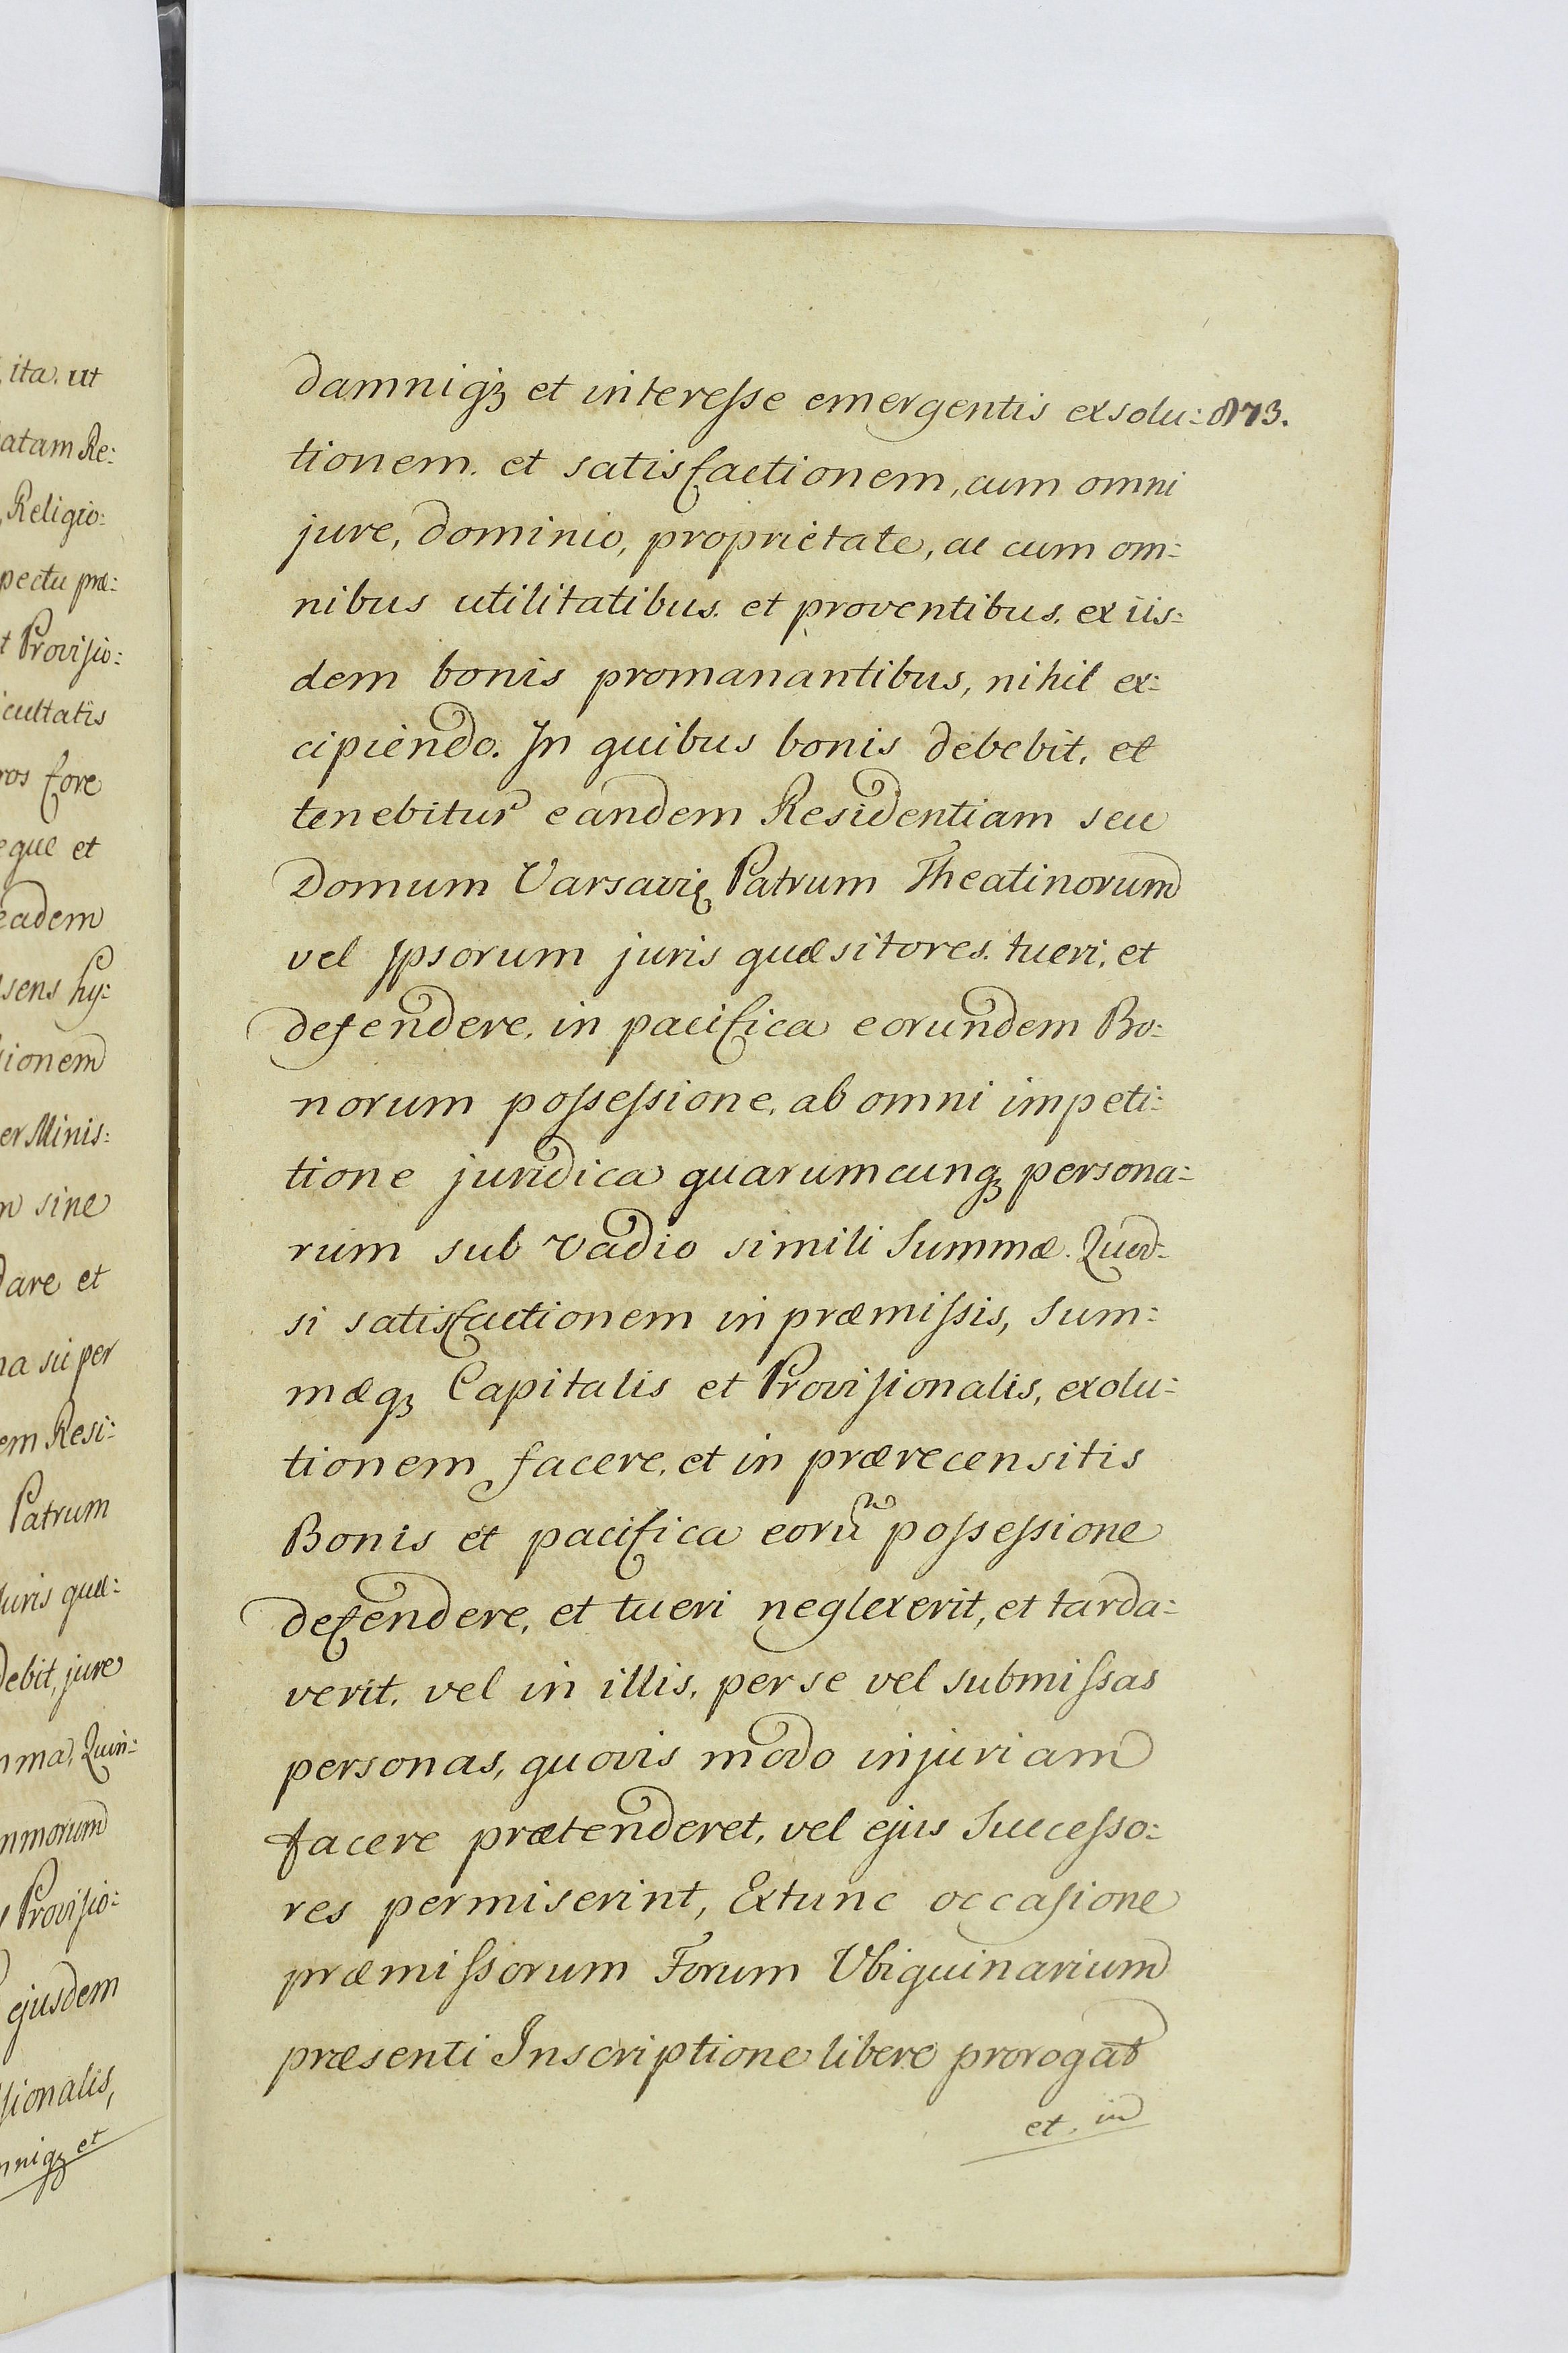 ita. ut
atam Re:
Religio:
pectu præ:
t Provisio:
icultatis
ros fore
eque et
eadem
sens hy:
sionem
er Minis:
m sine
dare et
na su per
em Resi:
Patrum
Juris quæ:
debit, jure
mma, Quin:
mmorum
Provisio:
ejusdem
sionalis,
mniqȝ et
damniqȝ et interesse emergentis exsolu: 873.
tionem. et satisfactionem, cum omni
jure, dominio, proprietate, ac cum om:
nibus utilitatibus. et proventibus. ex iis:
dem bonis promanantibus, nihil ex:
cipiendo. In quibus bonis debebit, et
tenebitur eandem Residentiam seu
Domum Varsavię Patrum Theatinorum
vel Ipsorum juris quæsitores. tueri, et
defendere, in pacifica eorundem Bo:
norum possessione, ab omni impeti:
tione juridica quarumcunqȝ persona:
rum sub vadio simili Summæ. Quod:
si satisfactionem in præmissis, Sum:
mæqȝ Capitalis et Provisionalis, exolu:
tionem facere, et in prærecensitis
Bonis et pacifica eorũ possessione
defendere, et tueri neglexerit, et tarda:
verit, vel in illis, per se vel submissas
personas, quovis modo injuriam
facere prætenderet, vel ejus Successo:
res permiserint, Extunc occasione
præmissorum Forum Ubiquinarium
præsenti Inscriptione libere prorogat
et. in